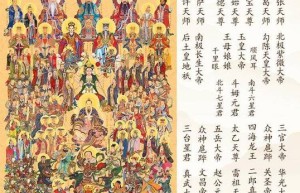 张天师
葛天师
天尊
天尊
天尊
天师
许天师
北极紫微大帝
勾陈天皇大帝
顺风耳
玉皇大帝
王母娘娘
千里眼
南极长生大帝
后土皇地祇
南斗六星君
斗姆元君
北斗七星君
三官大帝
众神扈跸
四海龙王
太乙天尊
五岳大帝
众神扈跸
三台星君
华光
关圣
二郎真
赵公元
文昌帝
真武